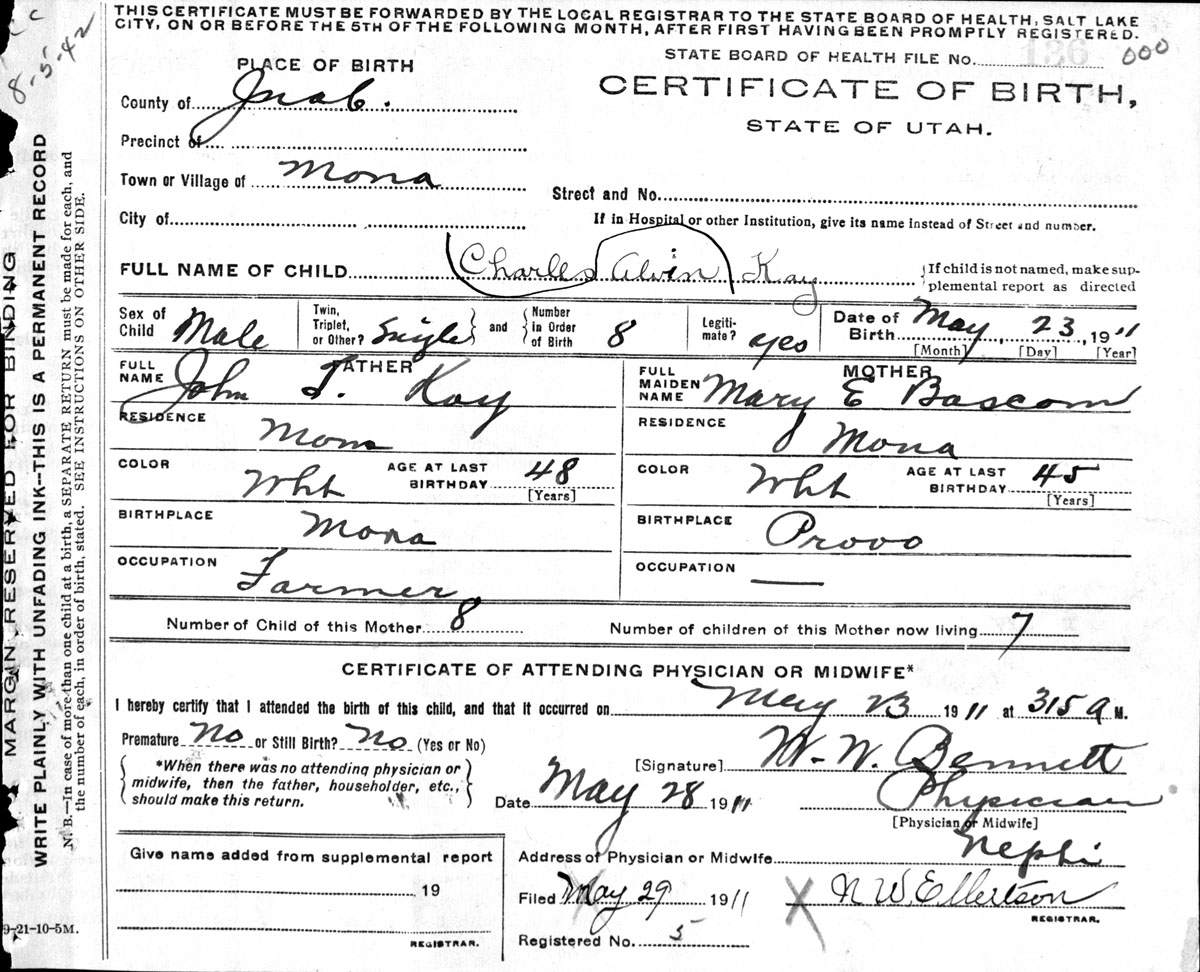 THIS CERTIFICATE MUST BE FORWARDED BY THE LOCAL REGISTRAR TO THE STATE BOARD OF HEALTH, SALT LAKE
CITY, ON OR BEFORE THE 5TH OF THE FOLLOWING MONTH, AFTER FIRST HAVING BEEN PROMPTLY REGISTERED.
8-5-42
STATE BOARD OF HEALTH FILE No. 136 000
PLACE OF BIRTH
CERTIFICATE OF BIRTH,
STATE OF UTAH.
County of Juab.
Precinct of
Town or Village of Mona
Street and No.
City of
If in Hospital or other Institution, give its name instead of Street and number.
FULL NAME OF CHILD Charles Alvin Kay
{If child is not named, make sup-
plemental report as directed
Sex of Child Male
Twin, Triplet, or Other? Single } and { Number in Order of Birth 8
Legiti-mate? yes
Date of Birth May, 23, 1911
[Month] [Day] [Year]
FATHER
FULL NAME John T. Kay
MOTHER
FULL MAIDEN NAME Mary E Bascom
RESIDENCE Mona
RESIDENCE Mona
COLOR Wht AGE AT LAST BIRTHDAY 48 [Years]
COLOR Wht AGE AT LAST BIRTHDAY 45 [Years]
BIRTHPLACE Mona
BIRTHPLACE Provo
OCCUPATION Farmer
OCCUPATION —
Number of Child of this Mother 8
Number of children of this Mother now living 7
CERTIFICATE OF ATTENDING PHYSICIAN OR MIDWIFE*
I hereby certify that I attended the birth of this child, and that it occurred on May 23 1911 at 315 a M.
Premature No or Still Birth? No (Yes or No)
{ *When there was no attending physician or
midwife, then the father, householder, etc.,
should make this return. }
[Signature] W. W. Bennett
Date May 28 1911 Physician
[Physician or Midwife]
Give name added from supplemental report
19
REGISTRAR.
Address of Physician or Midwife Nephi
Filed May 29 1911 X N W. Ellertson
REGISTRAR.
Registered No. 5
9-21-10-5M.
MARGIN RESERVED FOR BINDING
WRITE PLAINLY WITH UNFADING INK--THIS IS A PERMANENT RECORD
N. B.—In case of more than one child at a birth, a SEPARATE RETURN must be made for each, and
the number of each, in order of birth, stated. SEE INSTRUCTIONS ON OTHER SIDE.